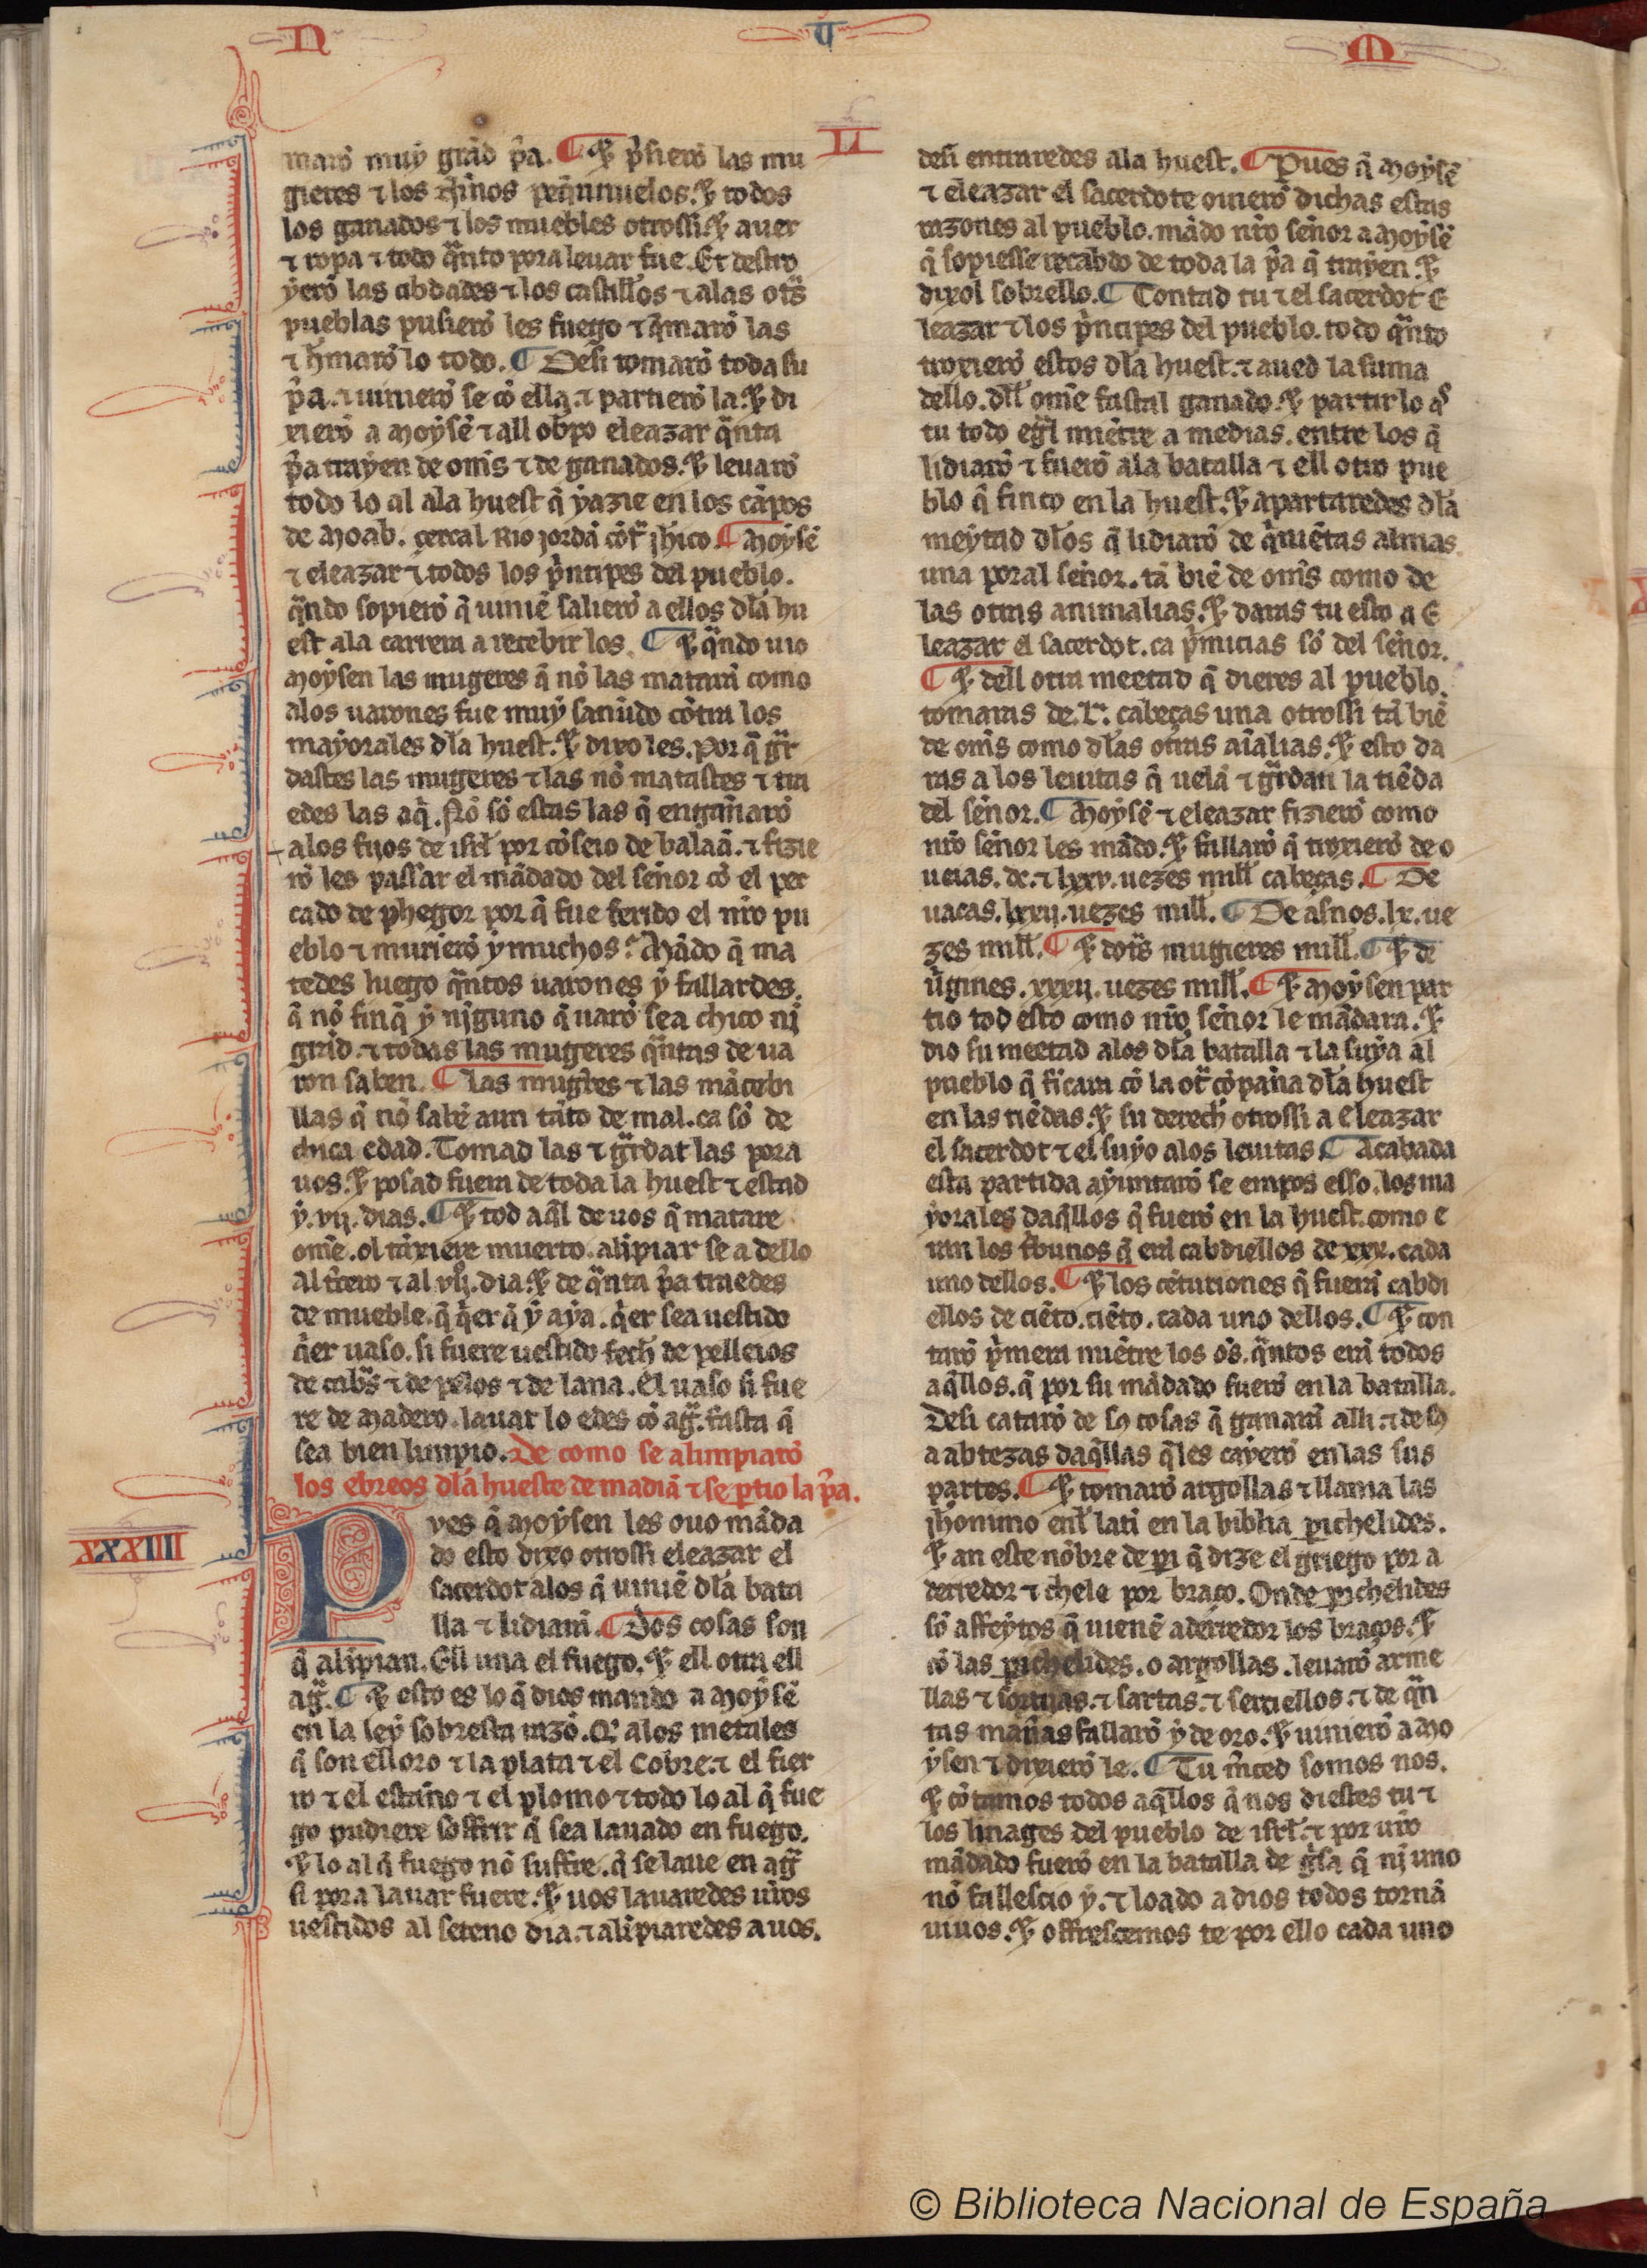 N U M
LI
maron muy grãd p̃a. ¶ ⁊ p̃sierõ las mu
gieres ⁊ los ñinos peq̃nnuelos. ⁊ todos
los ganados ⁊ los muebles otrossi. ⁊ auer
⁊ ropa ⁊ todo q̃nto pora leuar fue. Et destro
yerõ las cibdades ⁊ los castiellos ⁊ alas otr̃s
pueblas pusierõ les fuego ⁊ q̃marõ las
⁊ h̃marõ lo todo. ¶ Desi tomarõ toda su
p̃a. ⁊ uinierõ se cõ ella. ⁊ partierõ la. ⁊ di
xierõ a moysẽ ⁊ all obp̃o eleazar q̃nta
p̃a trayen de om̃s ⁊ de ganados. ⁊ leuarõ
todo lo al ala huest q̃ yazie en los cãpos
de moab. cercal Rio jordã cõtr̃ jh̃ico. ¶ Moysẽ
⁊ eleazar ⁊ todos los p̃ncipes del pueblo.
q̃ndo sopierõ q̃ uiniẽ salierõ a ellos dl̃a hu
est ala carrera a recebir los. ¶ ⁊ q̃ndo uio
moysen las mugeres q̃ nõ las matarã como
alos uarones fue muy sañudo cõtra los
mayorales dl̃a huest. ⁊ dixo les. por q̃ gr̃
dastes las mugeres ⁊ las nõ matastes ⁊ tra
edes las aq̃. Nõ sõ estas las q̃ engañarõ
alos fijos de isrl̃ por cõseio de balaã. ⁊ fizie
rõ les passar el mãdado del señor cõ el pec
cado de phegor por q̃ fue ferido el nr̃o pu
eblo ⁊ murierõ y muchos. Mãdo q̃ ma
tedes luego q̃ntos uarones y fallardes.
q̃ nõ finq̃ y njguno q̃ uarõ sea chico nj
grãd. ⁊ todas las mugeres q̃ntas de ua
ron saben. ¶ Las mugr̃es ⁊ las mãcebi
llas q̃ nõ sabẽ aun tãto de mal. ca sõ de
chica edad. Tomad las ⁊ gr̃dat las pora
uos. ⁊ posad fuera de toda la huest ⁊ estad
y .vij. dias. ¶ ⁊ tod aq̃l de uos q̃ matare
om̃e. ol tãxiere muerto. alĩpiar se a dello
al t̃cero ⁊ al vijº. dia. ⁊ de q̃nta p̃a traedes
de mueble. q̃ q̃er q̃ y aya. q̃er sea uestido
q̃er uaso. si fuere uestido fech̃ de pelleios
de cabr̃s ⁊ de pelos ⁊ de lana. El uaso si fue
re de madero. lauar lo edes cõ agr̃. fasta q̃
sea bien limpio. De como se alimpiarõ
los ebreos dl̃a hueste de madiã ⁊ se p̃tio la p̃a.
XXXIIII
Pves q̃ moysen les ouo mãda
do esto dixo otrossi eleazar el
sacerdot alos q̃ uiniẽ dl̃a bata
lla ⁊ lidiarã. ¶ Dos cosas son
q̃ alĩpian. Ell una el fuego. ⁊ ell otra ell
agr̃. ¶ ⁊ esto es lo q̃ dios mando a moysẽ
en la ley sobresta razõ. Q̃ alos metales
q̃ son elloro ⁊ la plata ⁊ el cobre. ⁊ el fier
ro ⁊ el estaño ⁊ el plomo ⁊ todo lo al q̃ fue
go pudiere soffrir q̃ sea lauado en fuego.
⁊ lo al q̃ fuego nõ suffre. q̃ se laue en agr̃
si pora lauar fuere. ⁊ uos lauaredes ur̃os
uestidos al seteno dia. ⁊ alĩpiaredes auos.
desi entraredes ala huest. ¶ Pues q̃ moysẽ
⁊ eleazar el sacerdote ouierõ dichas estas
razones al pueblo. mãdo nr̃o señor a moysẽ
q̃ sopiesse recabdo de toda la p̃a q̃ trayen. ⁊
dixol sobrello. ¶ Contad tu ⁊ el sacerdot E
leazar ⁊ los p̃ncipes del pueblo. todo q̃nto
troxierõ estos dl̃a huest. ⁊ aued la suma
dello. dl̃l om̃e fastal ganado. ⁊ partir lo as̃
tu todo egl̃ miẽtre a medias. entre los q̃
lidiarõ ⁊ fuerõ ala batalla ⁊ ell otro pue
blo q̃ finco en la huest. ⁊ apartaredes dl̃a
meytad dl̃os q̃ lidiarõ de q̃niẽtas almas
una poral señor. tã biẽ de om̃s como de
las otras animalias. ⁊ daras tu esto a E
leazar el sacerdot. ca p̃micias sõ del señor.
¶ ⁊ dell otra meetad q̃ dieres al pueblo.
tomaras de .Lª. cabeças una otrossi tã biẽ
de om̃s como dl̃as otras aĩalias. ⁊ esto da
ras a los leuitas q̃ uelã ⁊ gr̃dan la tiẽda
del señor. ¶ Moysẽ ⁊ eleazar fizierõ como
nr̃o señor les mãdo. ⁊ fallarõ q̃ troxierõ de o
ueias. dc. ⁊ lxxv. uezes mill cabeças. ¶ De
uacas. lxxij. uezes mill. ¶ De asnos. lx. ue
zes mill. ¶ ⁊ dotr̃s mugieres mill. ¶ ⁊ de
ũgines. xxxij. uezes mill. ¶ ⁊ moysen par
tio tod esto como nr̃o señor le mãdara. ⁊
dio su meetad alos dl̃a batalla ⁊ la suya al
pueblo q̃ ficara cõ la otr̃ cõpaña dl̃a huest
en las tiẽdas. ⁊ su derech̃ otrossi a Eleazar
el sacerdot ⁊ el suyo alos leuitas. ¶ Acabada
esta partida ayuntarõ se empos esso. los ma
yorales daq̃llos q̃ fuerõ en la huest. como e
ran los t̃bunos q̃ erã cabdiellos de xxx. cada
uno dellos. ¶ ⁊ los cẽturiones q̃ fuerã cabdi
ellos de ciẽto. ciẽto. cada uno dellos. ¶ ⁊ con
tarõ p̃mera miẽtre los õs. q̃ntos erã todos
aq̃llos. q̃ por su mãdado fuerõ en la batalla.
Desi catarõ de sꝯ cosas q̃ ganarã alli. ⁊ de sꝯ
aabtezas daq̃llas q̃les cayerõ en las sus
partes. ¶ ⁊ tomarõ argollas ⁊ llama las
jh̃onimo enl̃ latĩ en la biblia pichelides.
⁊ an este nõbre de pi q̃ dize el griego por a
derredor ⁊ chele por braço. Onde pichelides
sõ affeytos q̃ uienẽ aderredor los braços. ⁊
cõ las pichelides. o argollas. leuarõ arme
llas ⁊ sortijas. ⁊ sartas. ⁊ serciellos. ⁊ de q̃n
tas mañas fallarõ y de oro. ⁊ uinierõ a mo
ysen ⁊ dixierõ le. ¶ Tu m̃ced somos nos.
⁊ cõtamos todos aq̃llos q̃ nos diestes tu ⁊
los linages del pueblo de isrl̃. ⁊ por ur̃o
mãdado fuerõ en la batalla de gl̃sa q̃ nj uno
nõ fallescio y. ⁊ loado a dios todos tornã
uiuos. ⁊ offrescemos te por ello cada uno
© Biblioteca Nacional de España